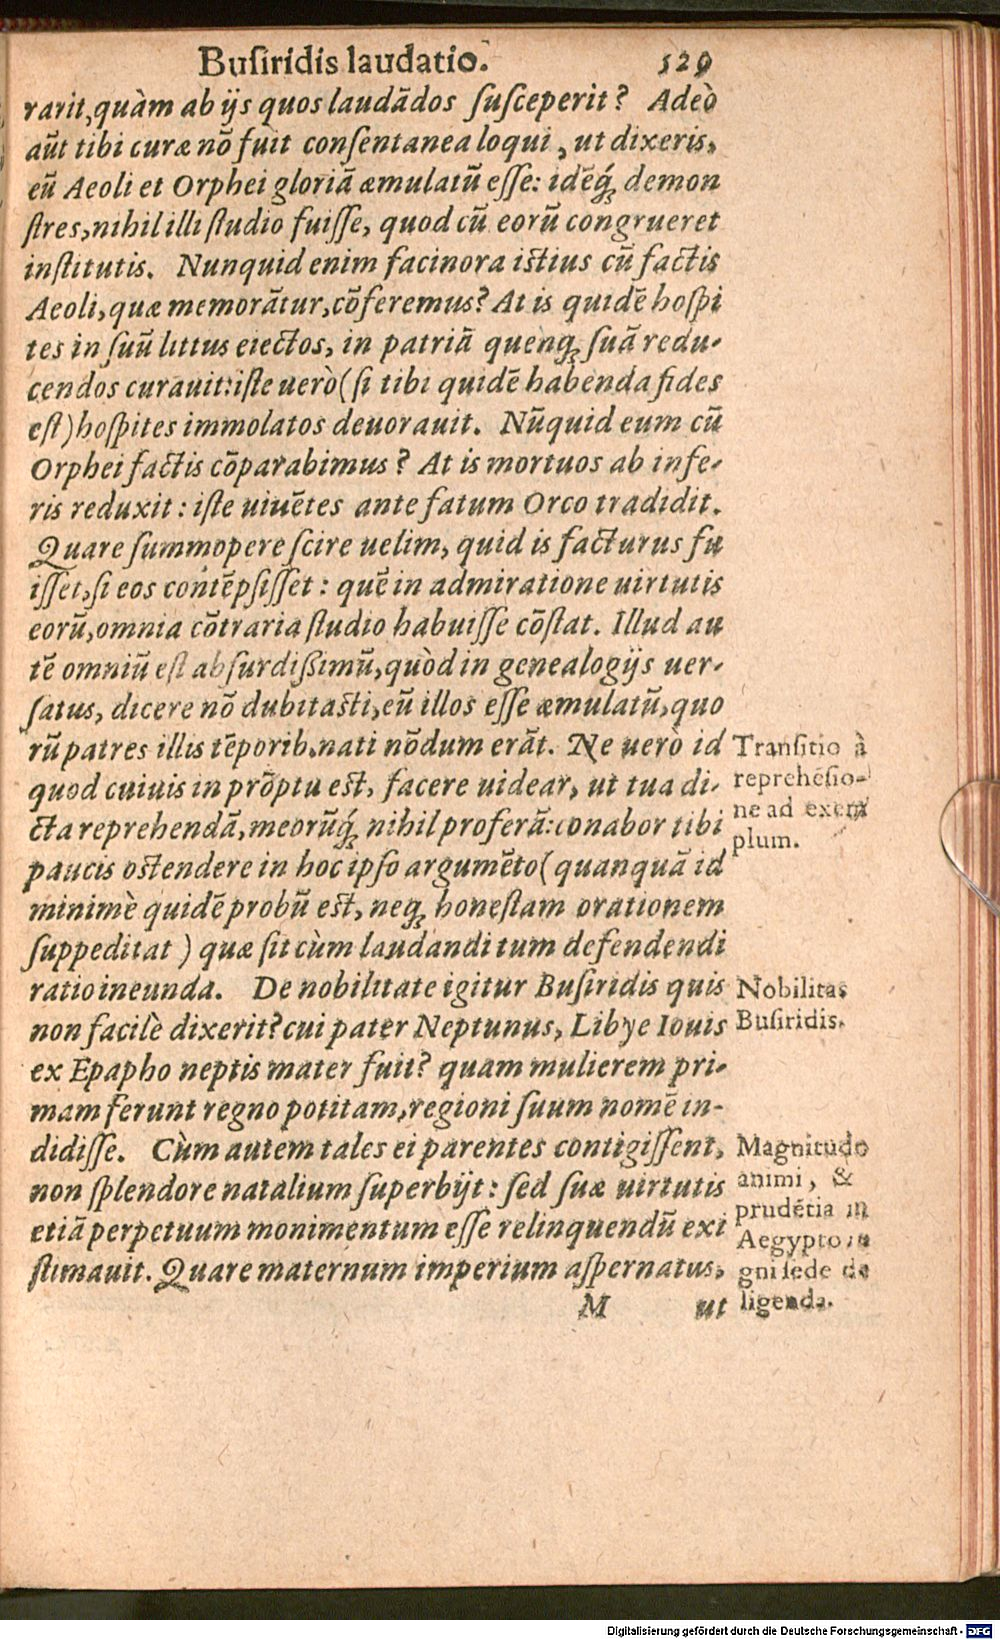 Buſiridis laudatio. 529
rarit, quàm ab ijs quos laudādos ſuſceperit? Adeò
aūt tibi curæ nō fuit conſentanea loqui, ut dixeris,
eū Aeoli et Orphei gloriā æmulatū eſſe: idēq́ꝫ demon
ſtres, nihil illi ſtudio fuiſſe, quod cū eorū congrueret
inſtitutis. Nunquid enim facinora iſtius cū factis
Aeoli, quæ memorātur, cōferemus? At is quidē hoſpi
tes in ſuū littus eiectos, in patriā quenqꝫ ſuā redu-
cendos curauit: iſte uerò (ſi tibi quidē habenda fides
eſt) hoſpites immolatos deuorauit. Nūquid eum cū
Orphei factis cōparabimus? At is mortuos ab infe-
ris reduxit: iſte uiuētes ante fatum Orco tradidit.
Quare ſummopere ſcire uelim, quid is facturus fu
iſſet, ſi eos contēpſiſſet: quē in admiratione uirtutis
eorū, omnia cōtraria ſtudio habuiſſe cōſtat. Illud au
tē omniū eſt abſurdiſſimū, quòd in genealogijs uer-
ſatus, dicere nō dubitaſti, eū illos eſſe æmulatū, quo
rū patres illis tēporib. nati nōdum erāt. Ne uerò id
quod cuiuis in prōptu eſt, facere uidear, ut tua di-
cta reprehendā, meorūq́ꝫ nihil proferā: conabor tibi
paucis oſtendere in hoc ipſo argumēto (quanquā id
minimè quidē probū eſt, neqꝫ honeſtam orationem
ſuppeditat) quæ ſit cùm laudandi tum defendendi
ratio ineunda. De nobilitate igitur Buſiridis quis
non facilè dixerit? cui pater Neptunus, Libye Iouis
ex Epapho neptis mater fuit? quam mulierem pri-
mam ferunt regno potitam, regioni ſuum nomē in-
didiſſe. Cùm autem tales ei parentes contigiſſent,
non ſplendore natalium ſuperbijt: ſed ſuæ uirtutis
etiā perpetuum monimentum eſſe relinquendū exi
ſtimauit. Quare maternum imperium aſpernatus,
M ut
Tranſitio à
reprehēſio-
ne ad exem
plum.
Nobilitas
Buſiridis.
Magnitudo
animi, &
prudētia in
Aegypto
gni ſede de
ligenda.
Digitalisierung gefördert durch die Deutsche Forschungsgemeinschaft - DFG